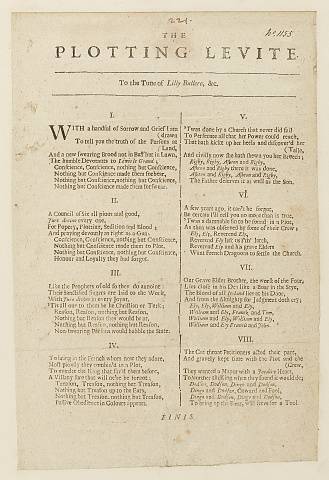 221.
No 1155
THE
PLOTTING LEVITE.
To the Tune of Lilly Bullero, &c.
I.
WITH a handful of Sorrow and Grief I am
(drawn
To tell you the truth of the Parsons o'
(Land,
And a new swearing Brood not in Buff but in Lawn,
The humble Devonetto to
Conscience, Conscience, nothing but Conscience,
Nothing but Conscience made them forbear,
Nothing but Conscience, nothing but Conscience,
Nothing but Conscience made them forswear.
II.
A Council of Six all pious and good,
Jure divino every one,
For Popery, Plotting, Sedition and Blood;
And praying devoutly as right as a Gun.
Conscience, Conscience, nothing but Conscience,
Nothing but Conscience made them to Plot,
Nothing but Conscience, nothing but Conscience,
Honour and Loyalty they had forgot.
III.
Like the Prophets of old so these do anoint
Their sanctified fingers are laid to the Work,
With Jure divino in every Joynt,
'Tis all one to them be he Christian or Turk;
Reason, Reason, nothing but Reason,
Nothing but Reason they would be at,
Nothing but Reason, nothing but Reason,
Non swearing Parsons would babble the State.
IV.
To bring in the French whom now they adore,
Most piously they combin'd in a Plot,
To murder the King that sav'd them before,
A Villany sure that will ne're be forgot;
Treason, Treason, nothing but Treason,
Nothing but Treason up to the Ears,
Nothing but Treason, nothing but Treason,
Passive Obedience in Colours appears.
V.
'Twas done by a Church that never did fail
To Persecute all that her Power could reach,
That hath kickt up her heels and discover'd her
(Tails,
And civilly now she hath shown you her Breech;
Rigby, Rigby, Ashton and Rigby,
Ashton and Rigby there it was done,
Ashton and Rigby, Ashton and Rigby,
The Father deliver'd it as well as the Son.
VI.
A few years ago, it can't be forgot,
Be certain I'll tell you no more than is true,
'Twas a damnable sin to be found in a Plot,
As then was asserted by some of their Crew;
Ely, Ely, Reverend Ely,
Reverend Ely left us Fish' lurch,
Reverend Ely and his grave Elders
Want French Dragoons to settle the Church.
VII.
Our Grave Elder Brother, the work of the Four,
Lies close in his Den like a Boar in the Stye,
The blood of all Ireland lies at his Door,
And from the Almighty for Judgment doth cry;
Ely, Ely, William and Ely,
William and Ely, Francis, and Tom,
William and Ely, William and Ely,
William and Ely Francis and John.
VIII.
The Cut throat Petitioners acted their part,
And gravely kept time with the Plot and the
(Crow,
They wanted a Mayor with a Pensive Heart,
To Murther the King when they found it would do;
Dodson, Dodson, Dingo and Dodson,
Dingo and Dodson, Coward and Fool,
Dingo and Dodson, Dingo and Dodson,
To bring up the Rear, will serve for a Tool.
FINIS.